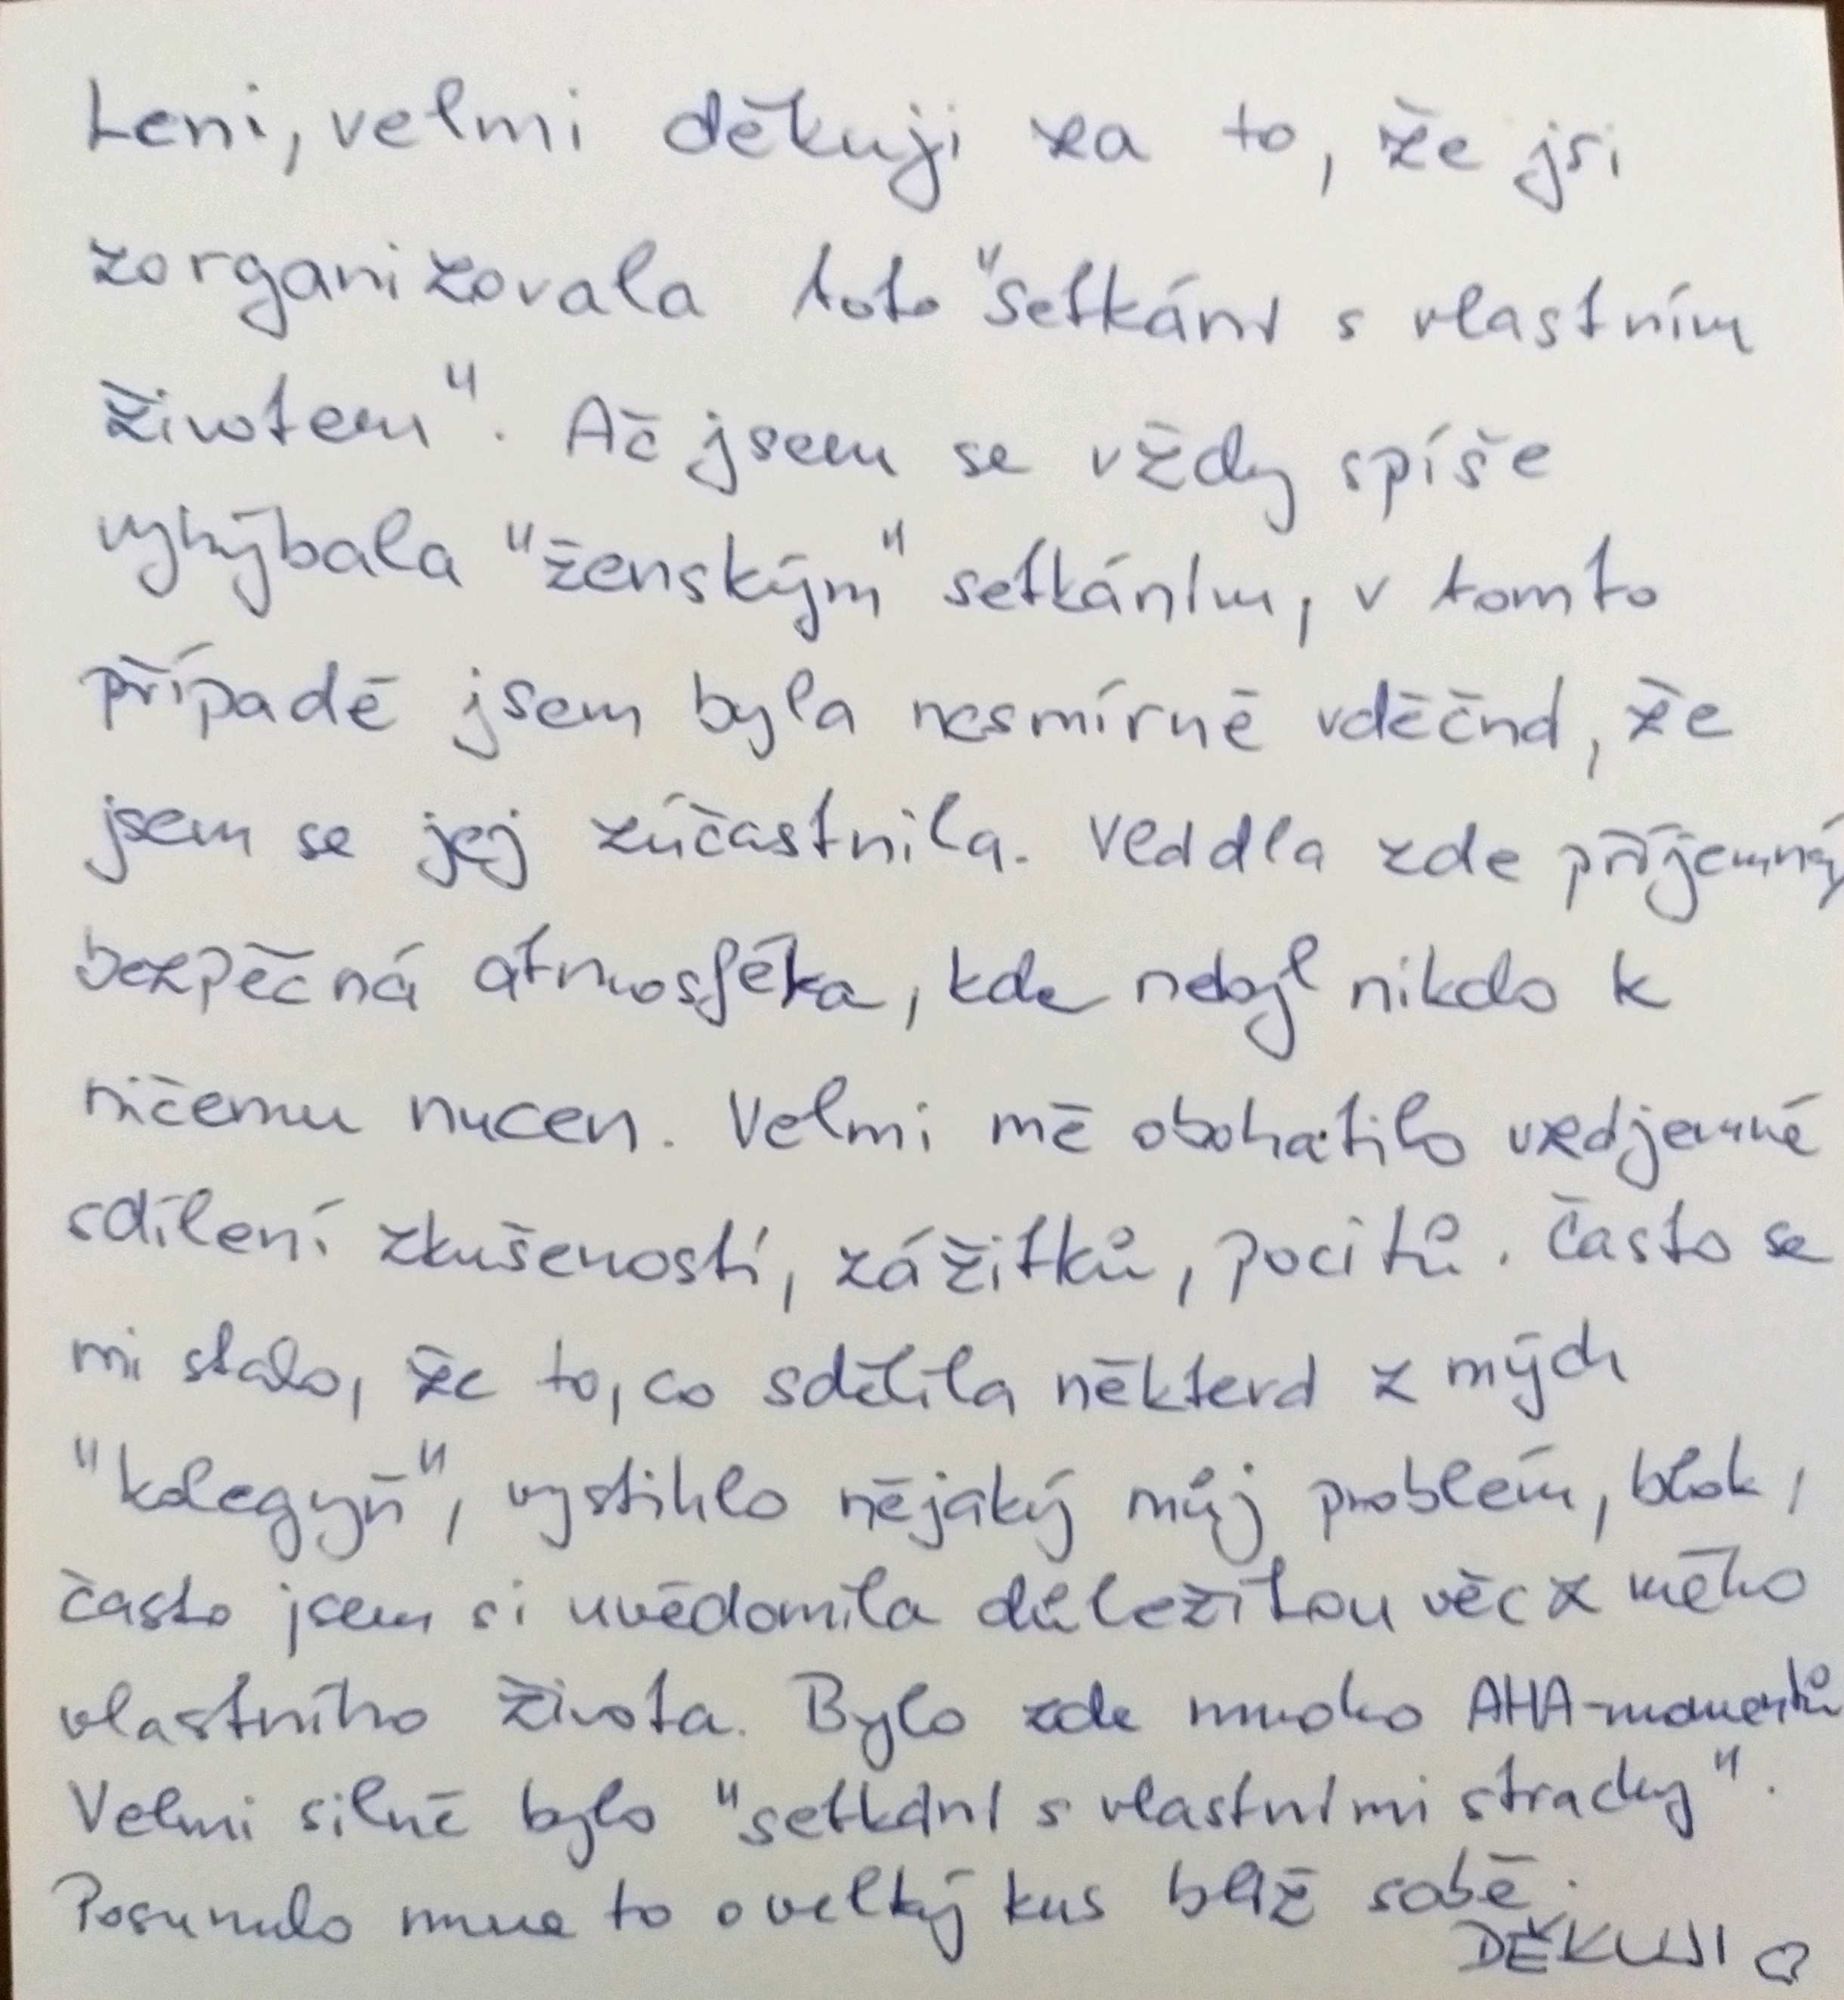 Leni, velmi děkuji za to, že jsi
zorganizovala toto "setkání s vlastním
životem". Ač jsem se vždy spíše
vyhýbala "ženským" setkáním, v tomto
případě jsem byla nesmírně vděčná, že
jsem se jej zúčastnila. Vládla zde příjemná,
bezpěčná atmosféra, kde nebyl nikdo k
ničemu nucen. Velmi mě obohatilo vzájemné
sdílení zkušeností, zážitků, pocitů. Často se
mi stalo, že to, co sdělila některá z mých
"kolegyň", vystihlo nějaký můj problém, blok,
často jsem si uvědomila důležitou věc z mého
vlastního života. Bylo zde mnoho AHA-momentů
Velmi silné bylo "setkání s vlastními strachy".
Posunulo mne to o velký kus blíž sobě.
DĚKUJI